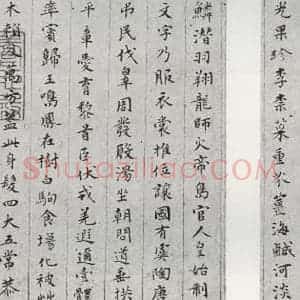 光果珍李柰菜重芥薑海鹹河淡
鱗潛羽翔龍師火帝鳥官人皇始制
文字乃服衣裳推位讓國有虞陶唐
弔民伐辠周發殷湯坐朝問道垂拱
平章愛育黎首臣伏戎羌遐邇壹體
率賓歸王鳴鳳在樹白駒食場化被草
木賴及萬方蓋此身髮四大五常恭
Shufaziliao.com